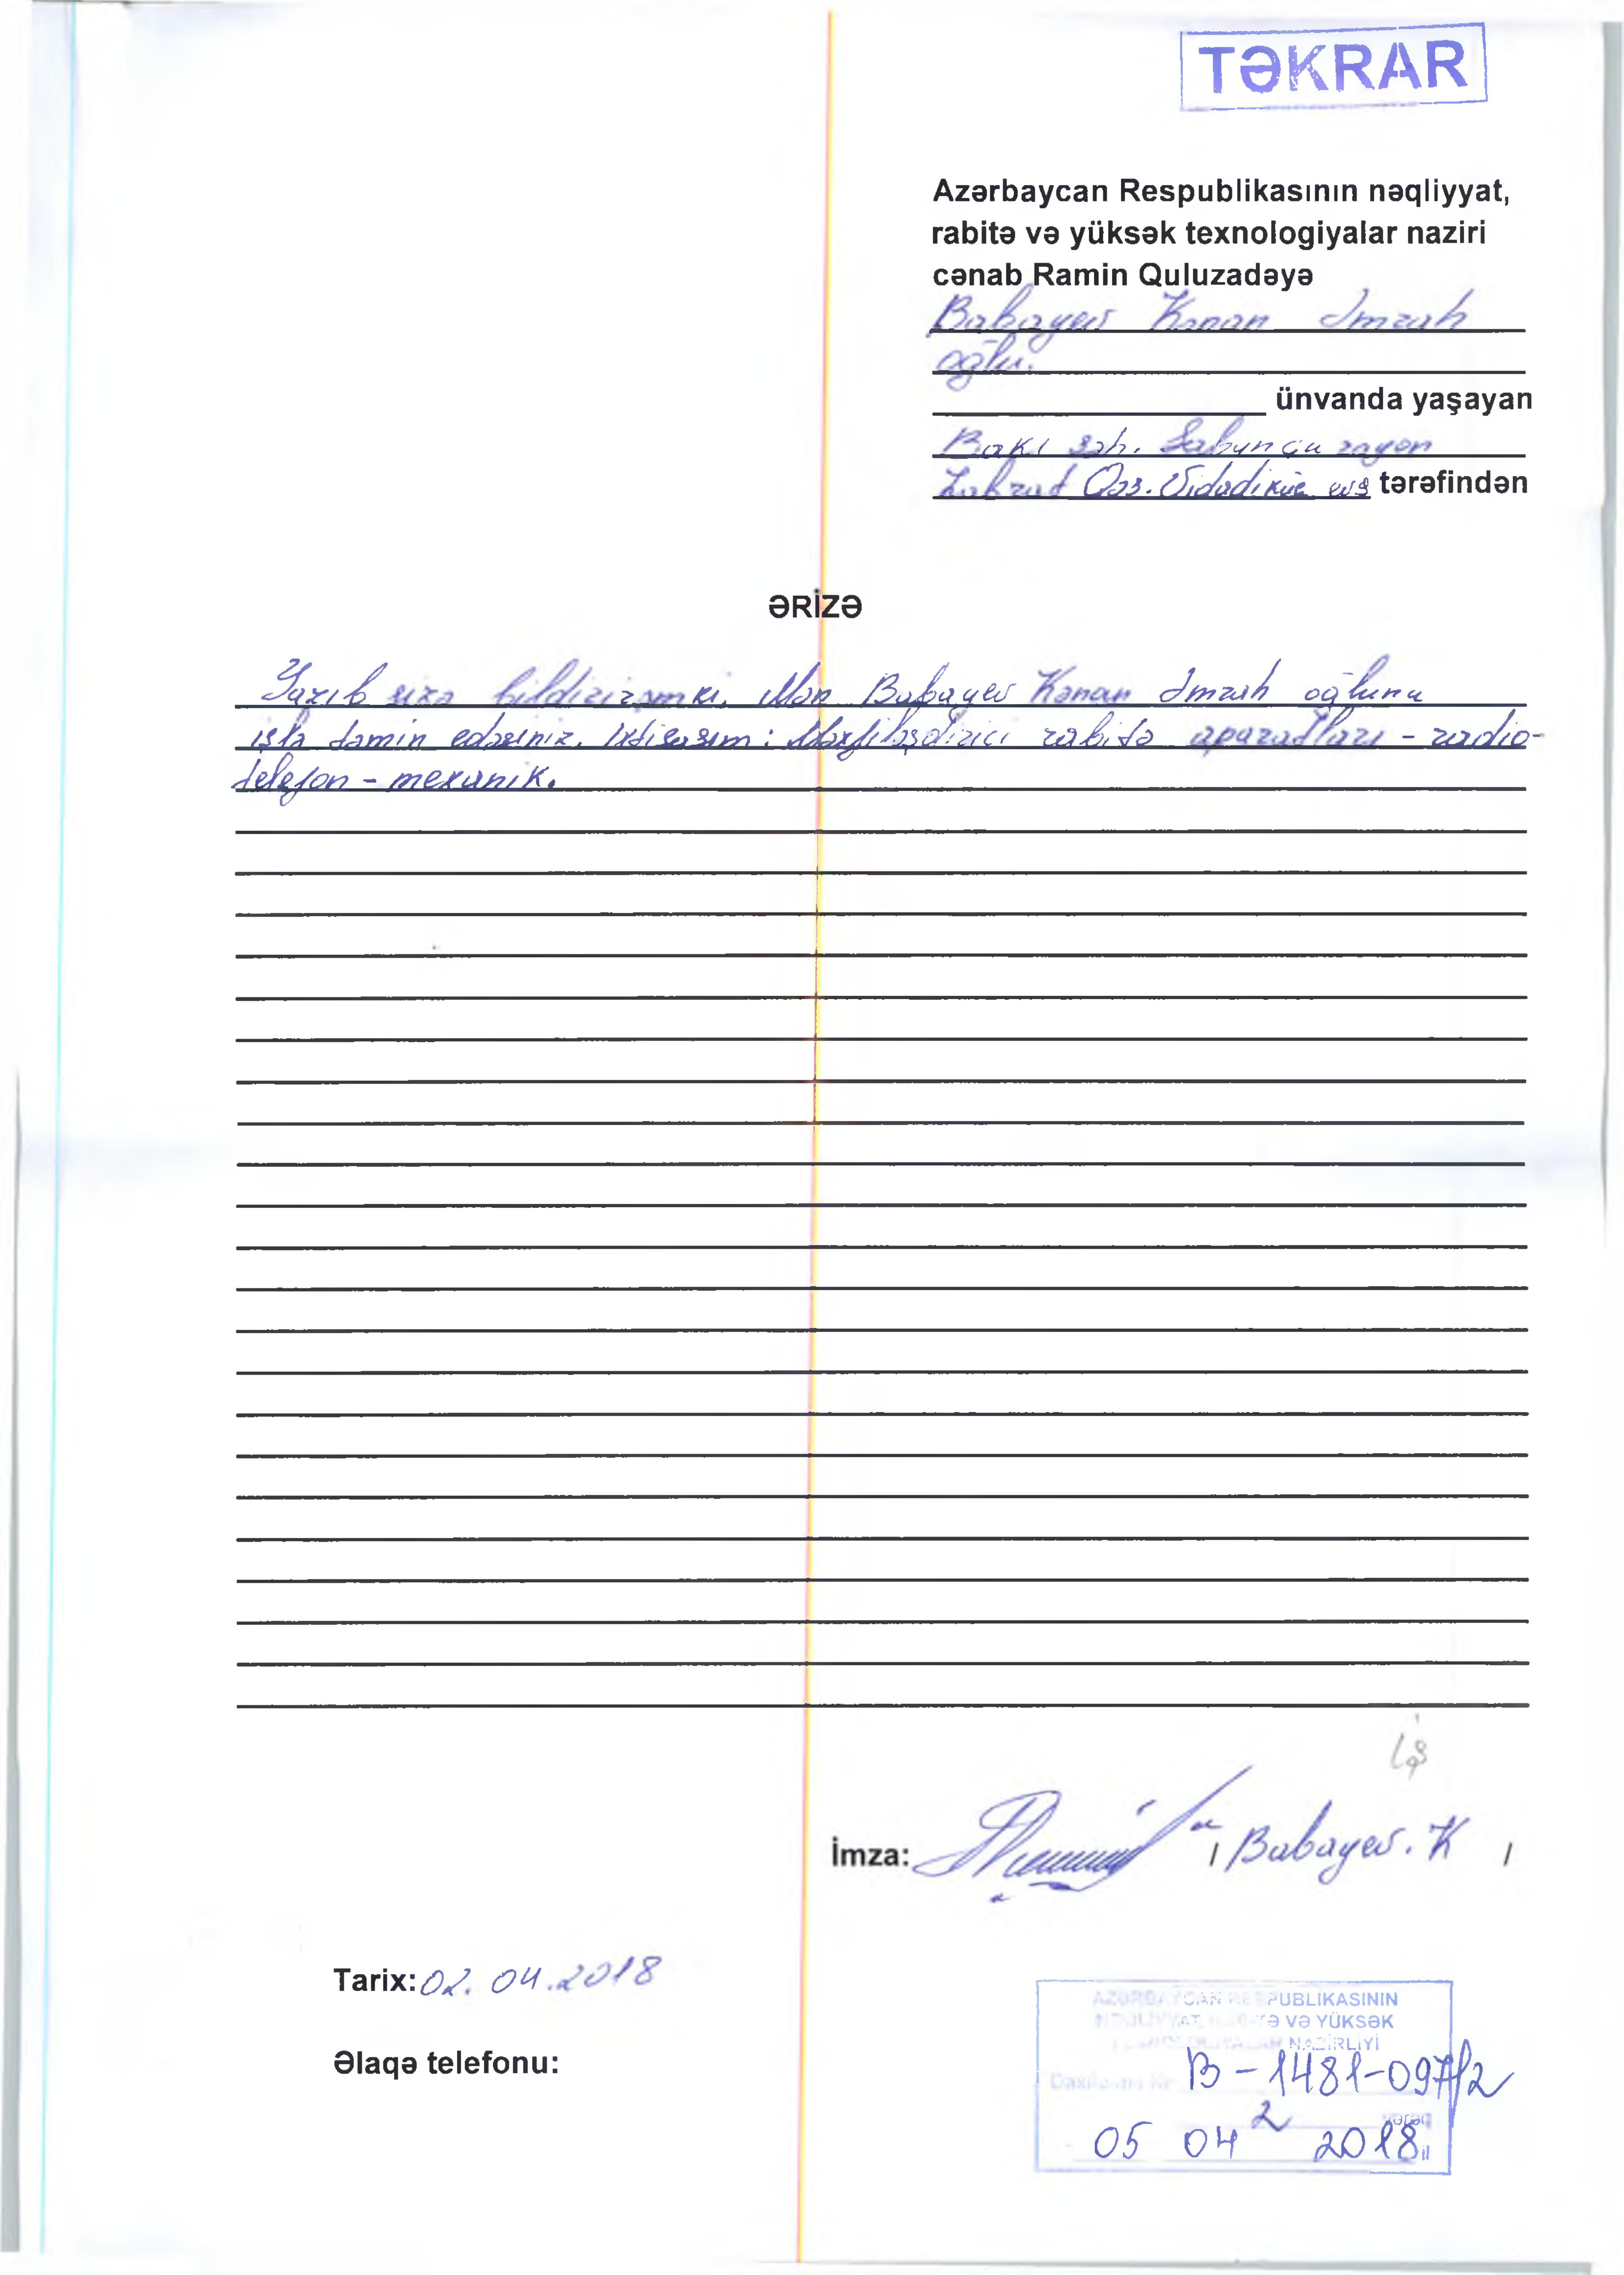 TƏKRAR
Azərbaycan Respublikasının nəqliyyat,
rabitə və yüksək texnologiyalar naziri
cənab Ramin Quluzadəyə
Babayev Kənan İmzah
oğlu.
ünvanda yaşayan
Bakı şəh. Sabunçu rayon
Zabrat Qəs. Vidadi küç. ev8 tərəfindən
ƏRİZƏ
Yazıb sizə bildirirəmki, Mən Babayev Kənan İmzah oğlunu
işlə təmin edəsiniz. İxtisasım: Məxfiləşdirici rabitə aparatları - radio-
telefon - mexanik.
iş
İmza: / Babayev. K /
Tarix: 02. 04.2018
Əlaqə telefonu:
AZƏRBAYCAN RESPUBLİKASININ
NƏQLİYYAT, RABİTƏ VƏ YÜKSƏK
TEXNOLOGİYALAR NAZİRLİYİ
Daxilolma № B-1481-097/2
2 vərəq
05 04 2018 il